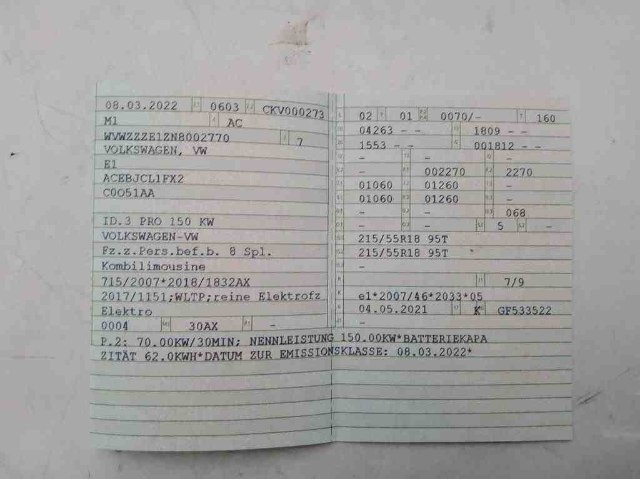 08.03.2022 0603 CKV000273
M1 AC
WVWZZZE1ZN8002770 7
VOLKSWAGEN, VW
E1
ACEBJCL1FX2
C0O51AA
ID.3 PRO 150 KW
VOLKSWAGEN-VW
Fz.z.Pers.bef.b. 8 Spl.
Kombilimousine
715/2007*2018/1832AX
2017/1151;WLTP;reine Elektrofz
Elektro
0004 30AX -
P.2: 70.00KW/30MIN; NENNLEISTUNG 150.00KW*BATTERIEKAPA
ZITÄT 62.0KWH*DATUM ZUR EMISSIONSKLASSE: 08.03.2022*
02 01 0070/- 160
04263 - - 1809 - -
1553 - - 001812 - -
- - -
- 002270 2270
01060 01260 -
01060 01260 -
- - 068
- - 5 -
215/55R18 95T
215/55R18 95T
-
- 7/9
e1*2007/46*2033*05
04.05.2021 K GF533522